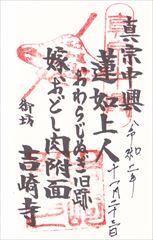 真宗中興
令和二年
十一月二十三日
蓮如上人
おわらじぬぎ旧跡
嫁おどし肉附面
御坊
吉崎寺